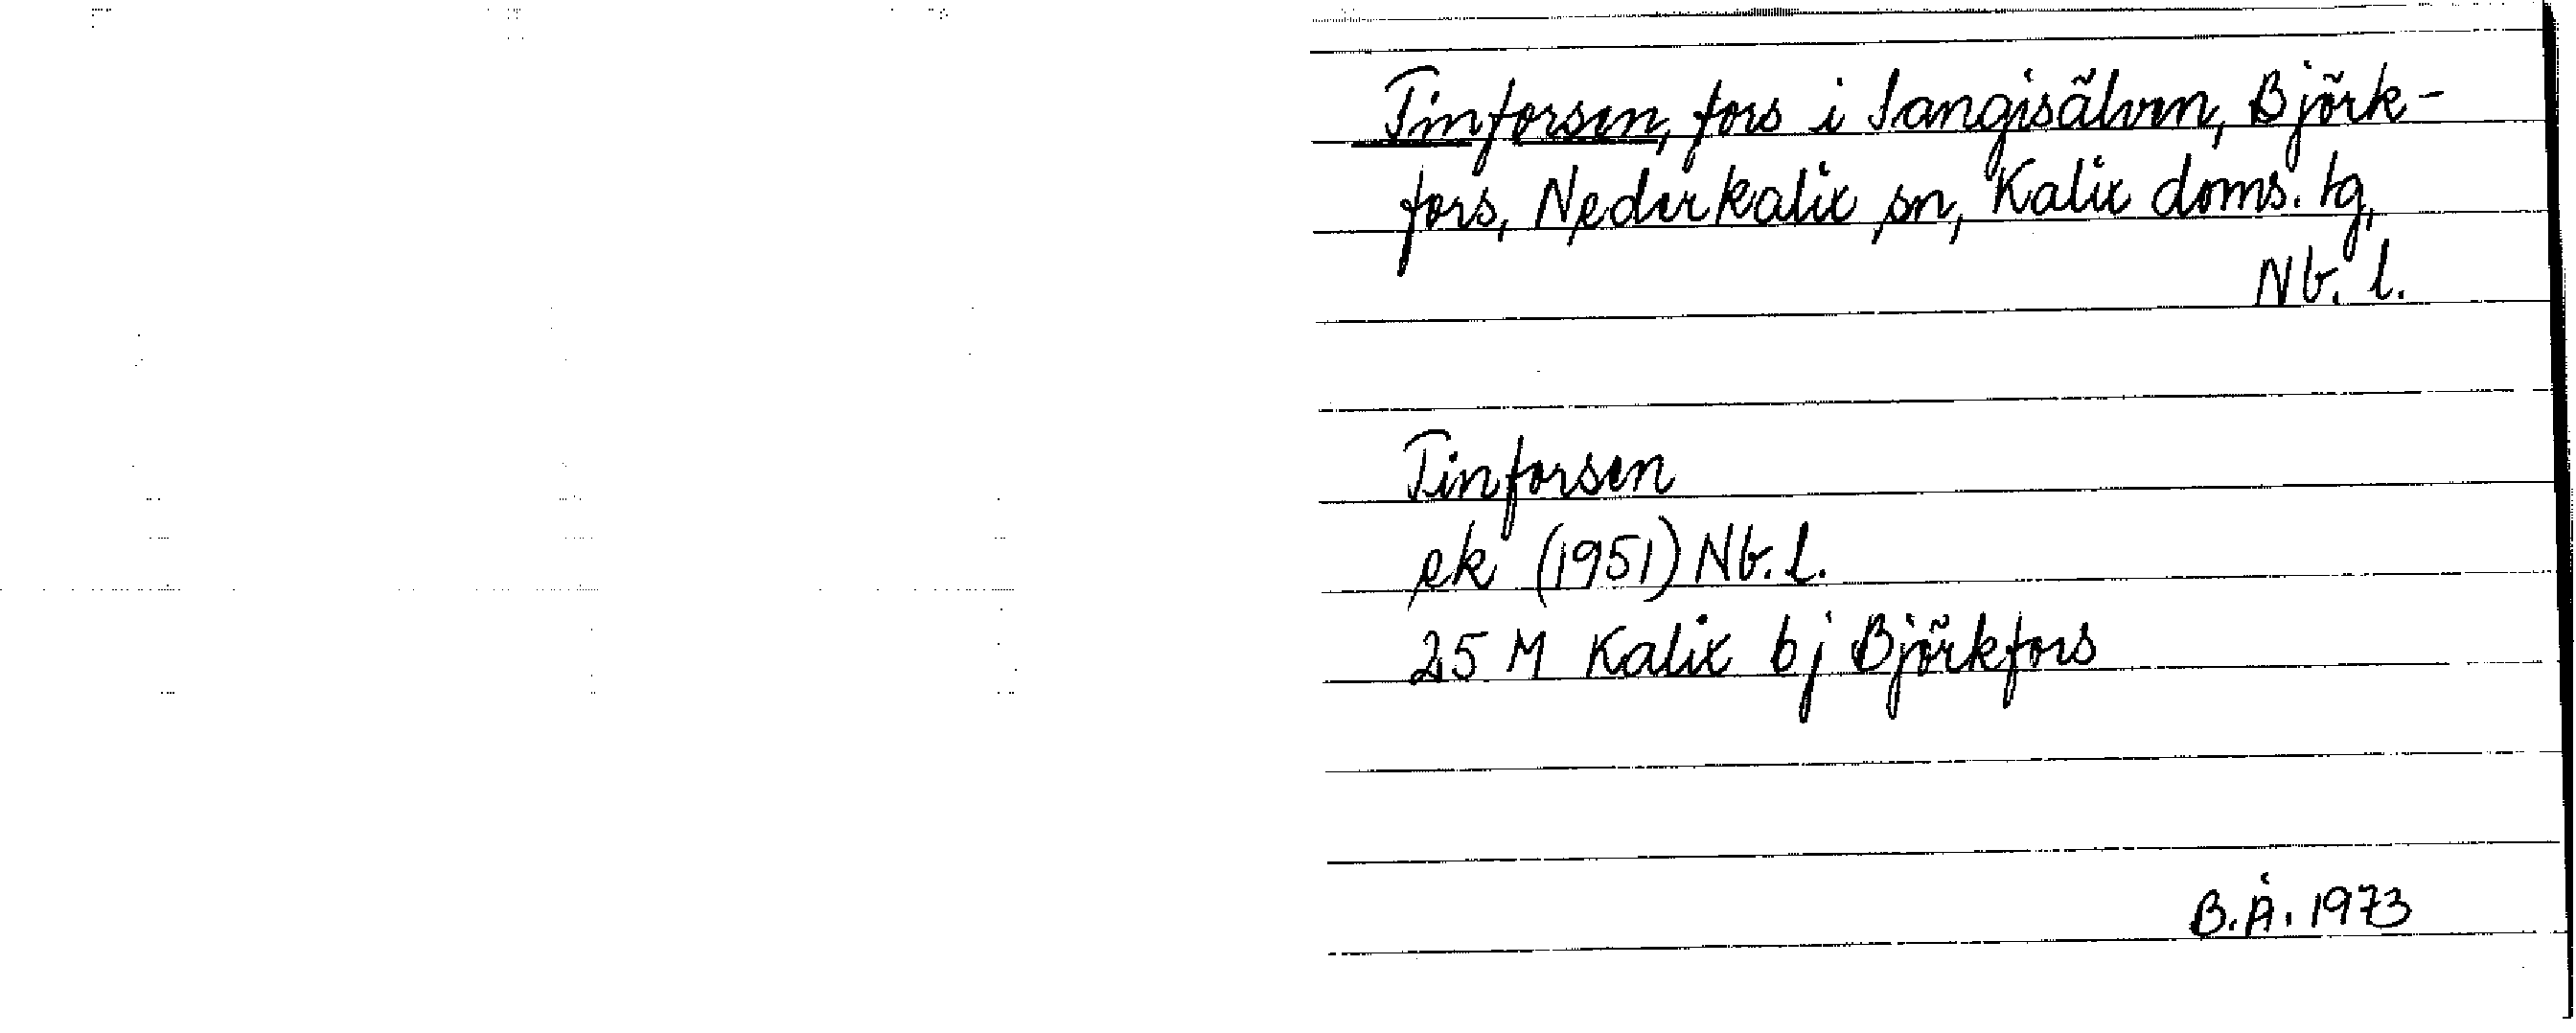 Tinforsen, fors i Sangisälven, Björk-
fors, Nederkalix sn, Kalix doms. tg,
Nb. l.
Tinforsen
ek (1951) Nb. l.
25 M Kalix bj Björkfors
B.Å. 1973